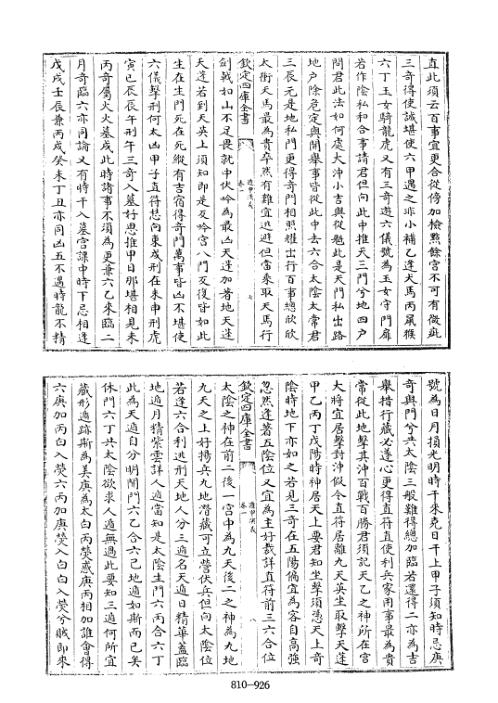 直此須云百事宜更合從傍加檢點餘宮不可有微疵
三奇得使誠堪使六甲遇之非小補乙逢犬馬丙鼠猴
六丁玉女騎龍虎又有三奇遊六儀號為玉女守門扉
若作陰私和合事請君但向此中推天三門兮地四戶
問君此法如何處太沖小吉與從魁此是天門私出路
地戶除危定與開舉事皆從此中去六合太陰太常君
三辰元是地私門更得奇門相照耀出行百事總欣欣
太衝天馬最為貴卒然有難宜逃避但當乘取天馬行
欽定四庫全書
卷一
遁甲演義
七
劍戟如山不足畏就中伏吟為最凶天蓬加著地天蓬
天蓬若到天英上須知即是反吟宮八門反復皆如此
生在生門死在死縱有吉宿得奇門萬事皆凶不堪使
六儀擊刑何太凶甲子直符愁向東戌刑在未申刑虎
寅巳辰辰午刑午三奇入墓好思推甲日那堪相見未
丙奇屬火火墓戌此時諸事不須為更兼六乙來臨二
月奇臨六亦同論又有時干入墓宮課中時下忌相逢
戊戌壬辰兼丙戌癸未丁丑亦同凶五不遇時龍不精
號為日月損光明時干來克日干上甲子須知時忌庚
奇與門兮共太陰三般難得總加臨若還得二亦為吉
舉措行藏必遂心更得直符直使利兵家用事最為貴
常從此地擊其沖百戰百勝君須記天乙之神所在宮
大將宜居擊對沖假令直符居離九天英坐取擊天蓬
甲乙丙丁戊陽時神居天上要君知坐擊須憑天上奇
陰時地下亦如之若見三奇在五陽偏宜為客自高強
忽然逢著五陰位又宜為主好裁詳直符前三六合位
欽定四庫全書
卷一
遁甲演義
八
太陰之神在前二後一宮中為九天後二之神為九地
九天之上好揚兵九地潛藏可立營伏兵但向太陰位
若逢六合利逃刑天地人分三遁名天遁日精華蓋臨
地遁月精紫雲詳人遁當知是太陰生門六丙合六丁
此為天遁自分明開門六乙合六己地遁如斯而已矣
休門六丁共太陰欲求人遁無過此要知三遁何所宜
藏形遁跡斯為美庚為太白丙熒惑庚丙相加誰會得
六庚加丙白入熒六丙加庚熒入白白入熒兮賊即來
810-926